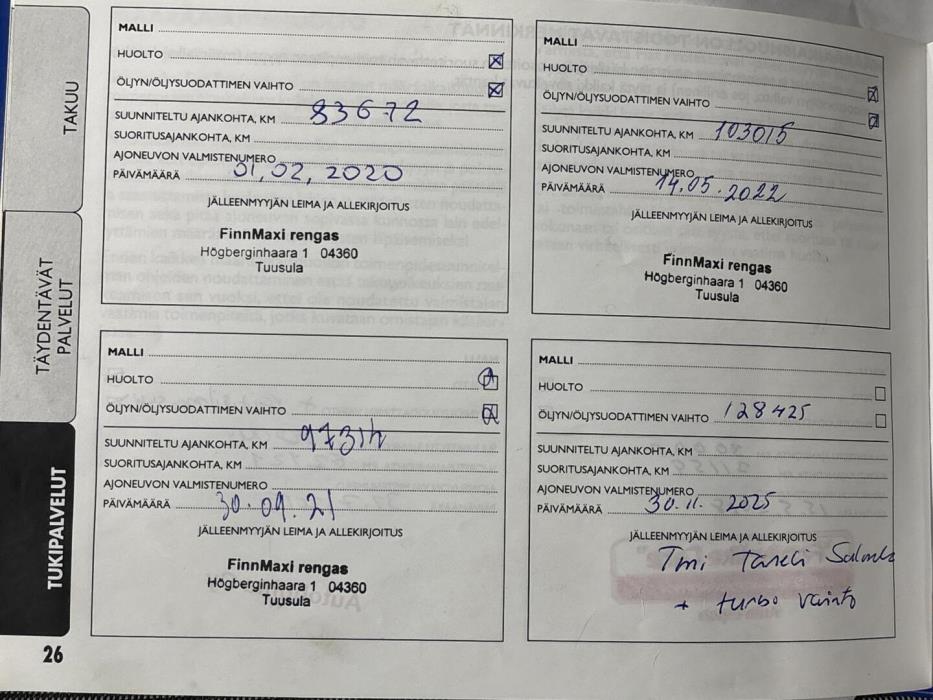 TAKUU
TÄYDENTÄVÄT
PALVELUT
TUKIPALVELUT
26
MALLI
HUOLTO
ÖLJYN/ÖLJYSUODATTIMEN VAIHTO
SUUNNITELTU AJANKOHTA, KM 83672
SUORITUSAJANKOHTA, KM
AJONEUVON VALMISTENUMERO
PÄIVÄMÄÄRÄ 01,02, 2020
JÄLLEENMYYJÄN LEIMA JA ALLEKIRJOITUS
FinnMaxi rengas
Högberginhaara 1 04360
Tuusula
MALLI
HUOLTO
ÖLJYN/ÖLJYSUODATTIMEN VAIHTO
SUUNNITELTU AJANKOHTA, KM 103015
SUORITUSAJANKOHTA, KM
AJONEUVON VALMISTENUMERO
PÄIVÄMÄÄRÄ 14.05.2022
JÄLLEENMYYJÄN LEIMA JA ALLEKIRJOITUS
FinnMaxi rengas
Högberginhaara 1 04360
Tuusula
MALLI
HUOLTO
ÖLJYN/ÖLJYSUODATTIMEN VAIHTO
SUUNNITELTU AJANKOHTA, KM 97314
SUORITUSAJANKOHTA, KM
AJONEUVON VALMISTENUMERO
PÄIVÄMÄÄRÄ 30.09.21
JÄLLEENMYYJÄN LEIMA JA ALLEKIRJOITUS
FinnMaxi rengas
Högberginhaara 1 04360
Tuusula
MALLI
HUOLTO
ÖLJYN/ÖLJYSUODATTIMEN VAIHTO 128425
SUUNNITELTU AJANKOHTA, KM
SUORITUSAJANKOHTA, KM
AJONEUVON VALMISTENUMERO
PÄIVÄMÄÄRÄ 30.11. 2025
JÄLLEENMYYJÄN LEIMA JA ALLEKIRJOITUS
Tmi Taneli
+ turbo vaihto